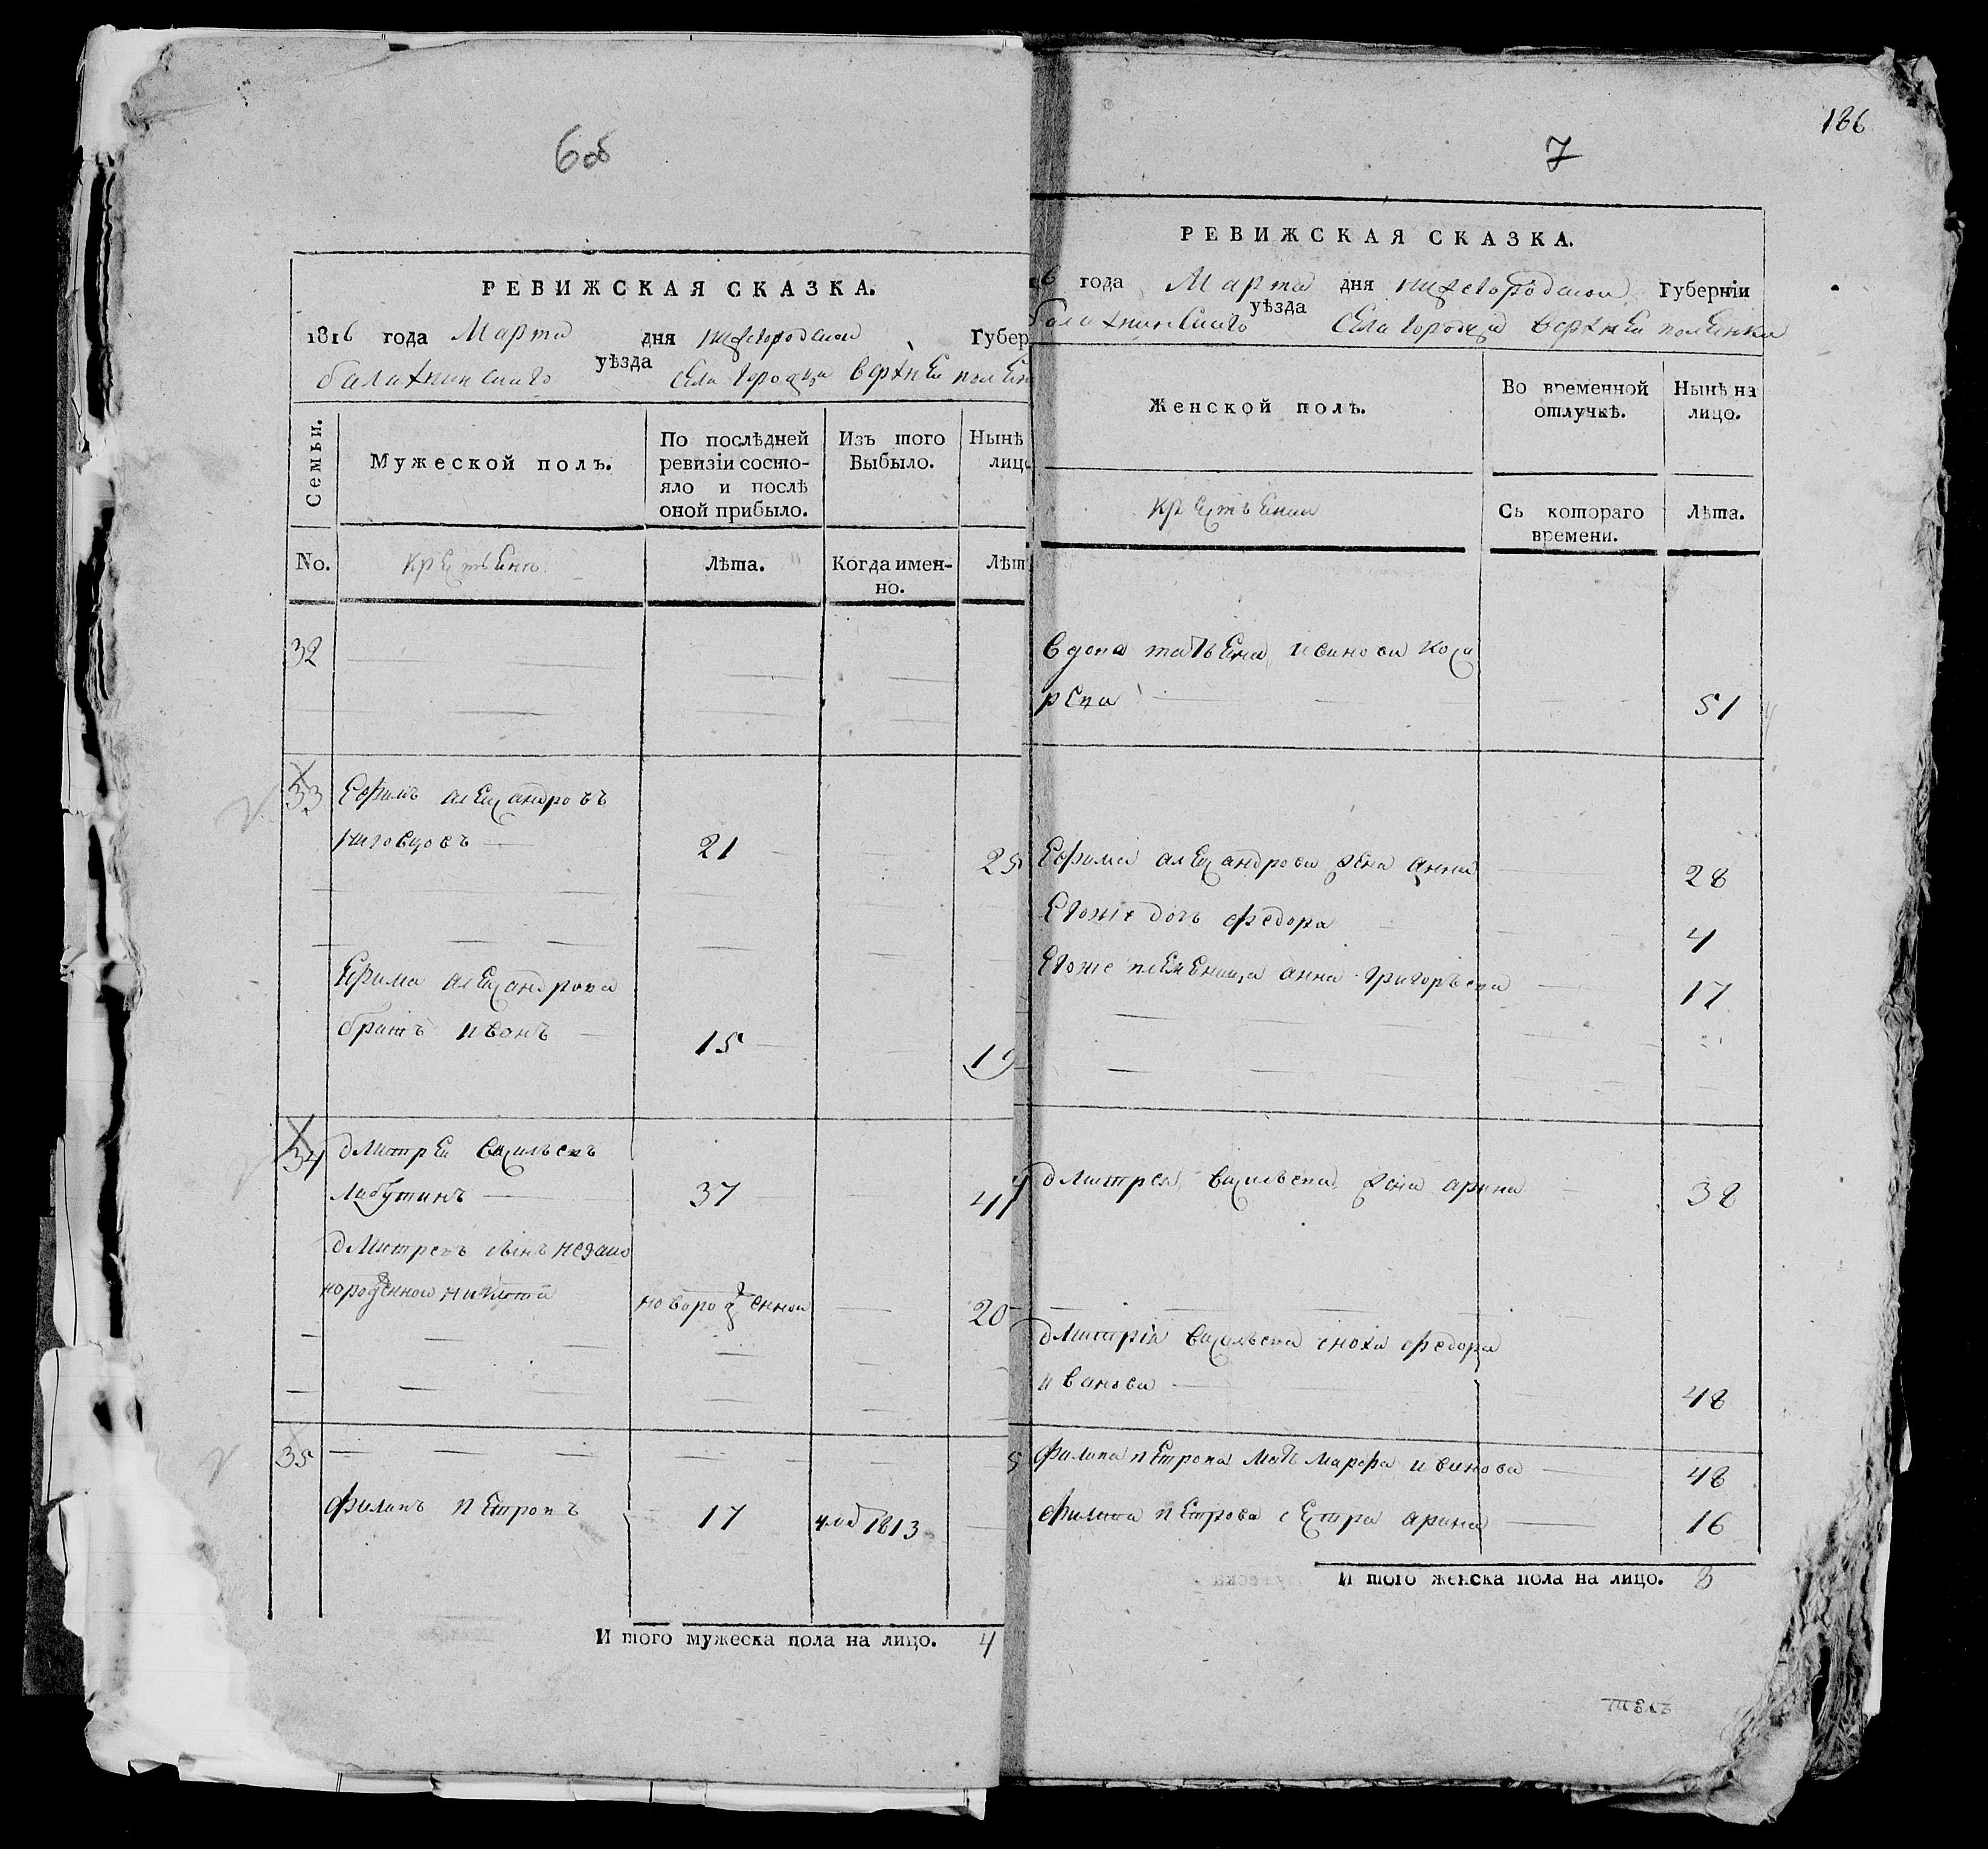 6 об
РЕВИЖСКАЯ СКАЗКА.
1816 года Марта дня нижегородской Губер
балахнинскаго уѣзда Села городца верхней полѣн
Семьи.
Мужеской полъ.
По послѣдней ревизіи состо-
яло и послѣ
оной прибыло.
Изъ того
Выбыло.
Нынѣ
лицо
No.
крестьянъ
Лѣта.
Когда имен-
но.
Лѣт
32
33 Ефимъ александровъ
21 25
Ефима александрова
братъ иванъ 15 19
34 дмитреи васильевъ
лабутинъ 37 41
дмитревъ сынъ
новорожденнои 20
35
филипъ петровъ 17 1813
И того мужеска пола на лицо. 4
186
7
РЕВИЖСКАЯ СКАЗКА.
16 года Марта дня нижегородской Губерніи
балахнинскаго уѣзда Села городца верхней полѣнки
Женской полъ.
Во временной
отлучкѣ.
Нынѣ на
лицо.
крестьянки
Съ котораго
времени.
Лѣта.
вдова татьяна иванова коса
рева 51
Ефима александрова жена анна 28
Егоже дочь федора 4
Егоже племеница анна григорьева 17
дмитрея васильева жена арина 38
дмитрія васильева сноха федора
иванова 48
филипа петрова мать марфа иванова 48
филипа петрова сестра арина 16
И того женска пола на лицо. 8